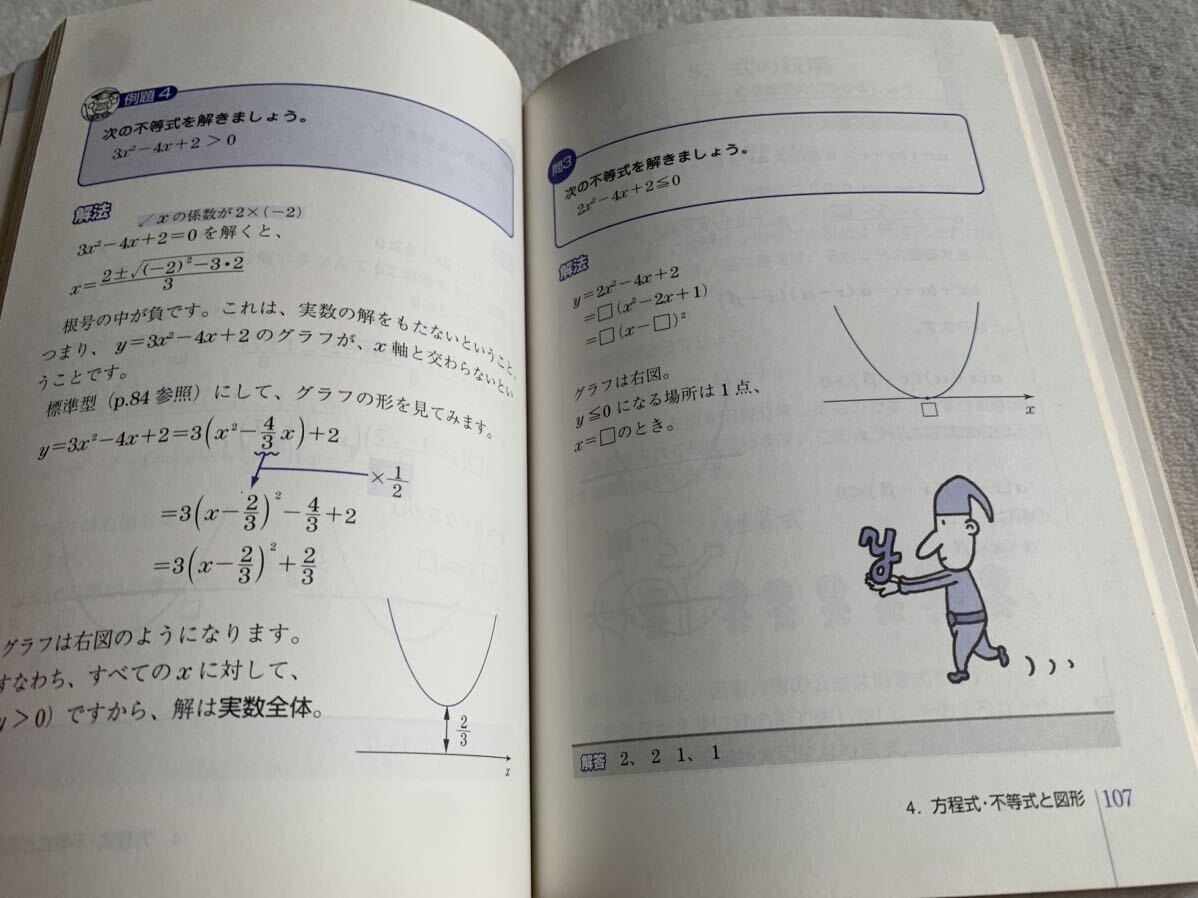 例題4
次の不等式を解きましょう。
3x²−4x+2 > 0
解法
✓ xの係数が2×(−2)
3x²−4x+2=0 を解くと、
x=\frac{2±√((−2)²−3・2)}{3}
根号の中が負です。これは、実数の解をもたないということ、
つまり、y=3x²−4x+2のグラフが、x軸と交わらないとい
うことです。
標準型（p.84参照）にして、グラフの形を見てみます。
y=3x²−4x+2=3(x²−\frac{4}{3}x)+2
×\frac{1}{2}
=3(x−\frac{2}{3})²−\frac{4}{3}+2
=3(x−\frac{2}{3})²+\frac{2}{3}
グラフは右図のようになります。
すなわち、すべてのxに対して、
y>0）ですから、解は実数全体。
\frac{2}{3}
x
問3
次の不等式を解きましょう。
2x²−4x+2≦0
解法
y=2x²−4x+2
=□(x²−2x+1)
=□(x−□)²
グラフは右図。
y≦0になる場所は1点、
x=□のとき。
□
x
y
解答 2、2 1、1
4．方程式・不等式と図形 107